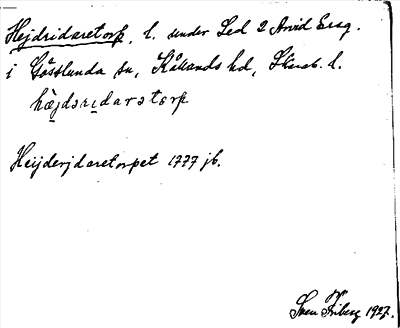 Hejdridaretorp, l. under Led 2 Arvid Ersg.
i Gösslunda sn, Kållands hd, Skarab. l.
hæjdsridarstɵrp
Heijderjdaretorpet 1777 jb.
Sven Friberg 1927.